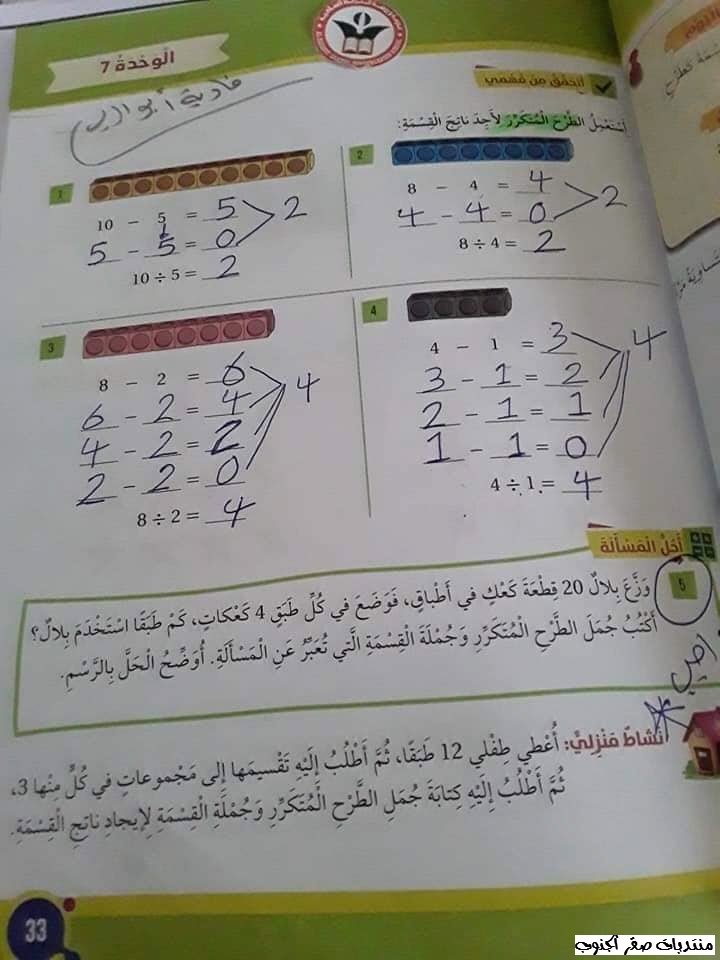 الْوَحْدَةُ 7
أَتَحَقَّقُ مِنْ فَهْمِي
أَسْتَعْمِلُ الطَّرْحَ الْمُتَكَرِّرَ لِأَجِدَ ناتِجَ الْقِسْمَةِ:
1
10 − 5 = 5
5 − 5 = 0
2
10 ÷ 5 = 2
2
8 − 4 = 4
4 − 4 = 0
2
8 ÷ 4 = 2
3
8 − 2 = 6
6 − 2 = 4
4 − 2 = 2
2 − 2 = 0
4
8 ÷ 2 = 4
4
4 − 1 = 3
3 − 1 = 2
2 − 1 = 1
1 − 1 = 0
4
4 ÷ 1 = 4
أَحُلُّ الْمَسْأَلَةَ
5
وَزَّعَ بِلالٌ 20 قِطْعَةَ كَعْكٍ في أَطْباقٍ، فَوَضَعَ في كُلِّ طَبَقٍ 4 كَعْكاتٍ، كَمْ طَبَقًا اسْتَخْدَمَ بِلالٌ؟
أَكْتُبُ جُمَلَ الطَّرْحِ الْمُتَكَرِّرِ وَجُمْلَةَ الْقِسْمَةِ الَّتي تُعَبِّرُ عَنِ الْمَسْأَلَةِ. أُوَضِّحُ الْحَلَّ بِالرَّسْمِ.
نَشاطٌ مَنْزِلِيٌّ: أُعْطي طِفْلي 12 طَبَقًا، ثُمَّ أَطْلُبُ إِلَيْهِ تَقْسيمَها إِلى مَجْموعاتٍ في كُلٍّ مِنْها 3،
ثُمَّ أَطْلُبُ إِلَيْهِ كِتابَةَ جُمَلِ الطَّرْحِ الْمُتَكَرِّرِ وَجُمْلَةِ الْقِسْمَةِ لِإيجادِ ناتِجِ الْقِسْمَةِ.
33
منتديات صقر الجنوب